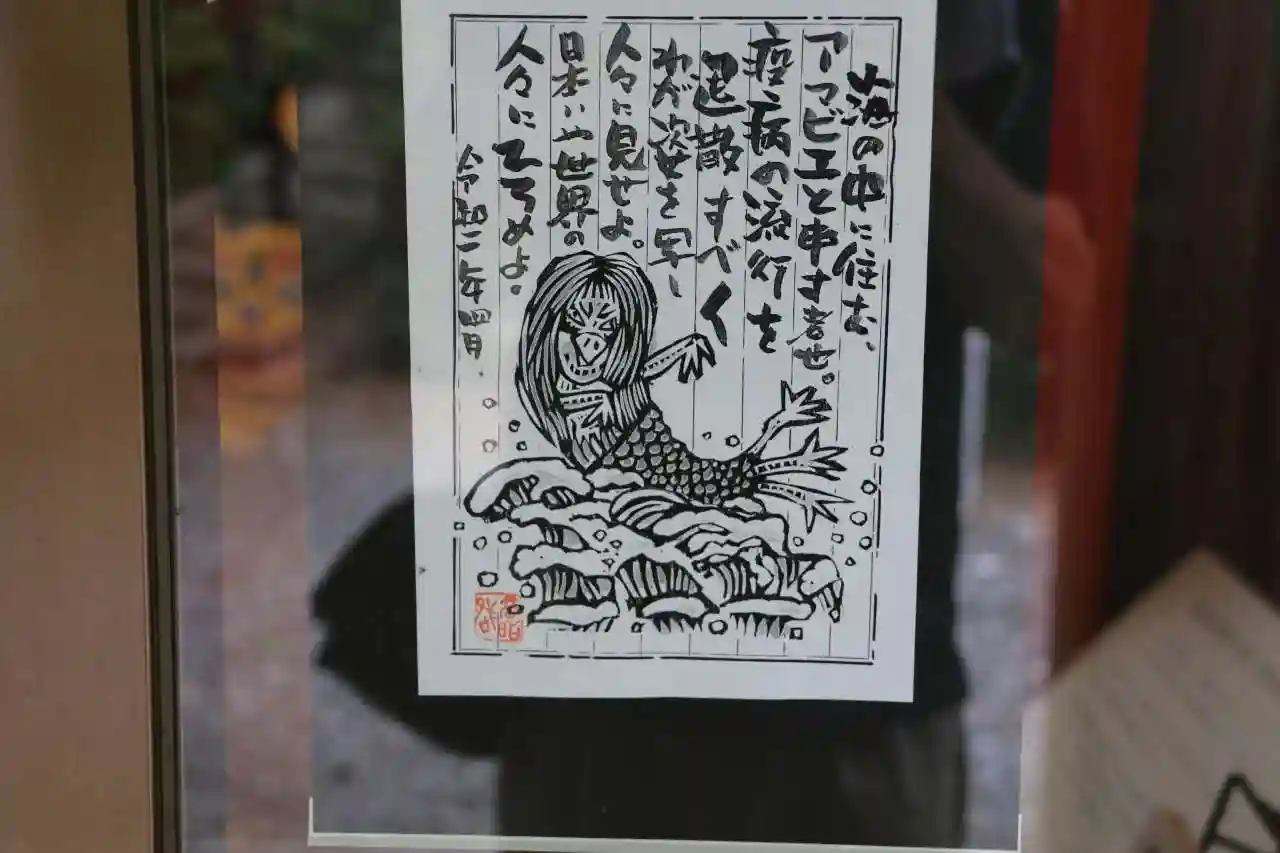 海の中に住む、
アマビエと申す者せ。
疫病の流行を
退散すべく
わが姿を写し
人々に見せよ。
日本いや世界の
人々にひろめよ。
令和二年四月.